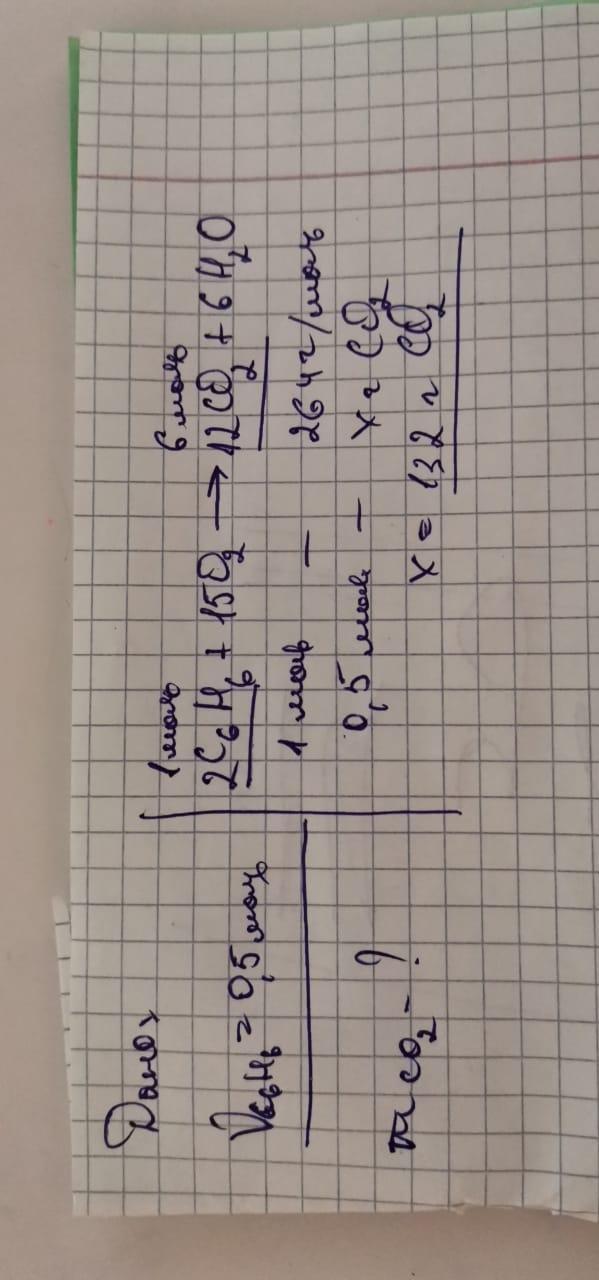 Дано:
νC₆H₆ = 0,5 моль
mCO₂ - ?
1 моль 6 моль
2C₆H₆ + 15O₂ → 12CO₂ + 6H₂O
1 моль — 264 г/моль
0,5 моль — x г CO₂
x = 132 г CO₂